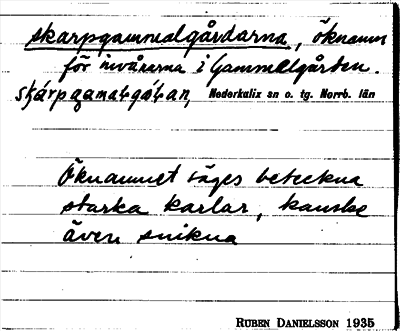 skarpgammalgårdarna, öknamn
för invånarna i Gammelgården.
skárpgamaLgóLan, Nederkalix sn o. tg. Norrb. län
Öknamnet säges beteckna
starka karlar, kanske
även snikna
RUBEN DANIELSSON 1935